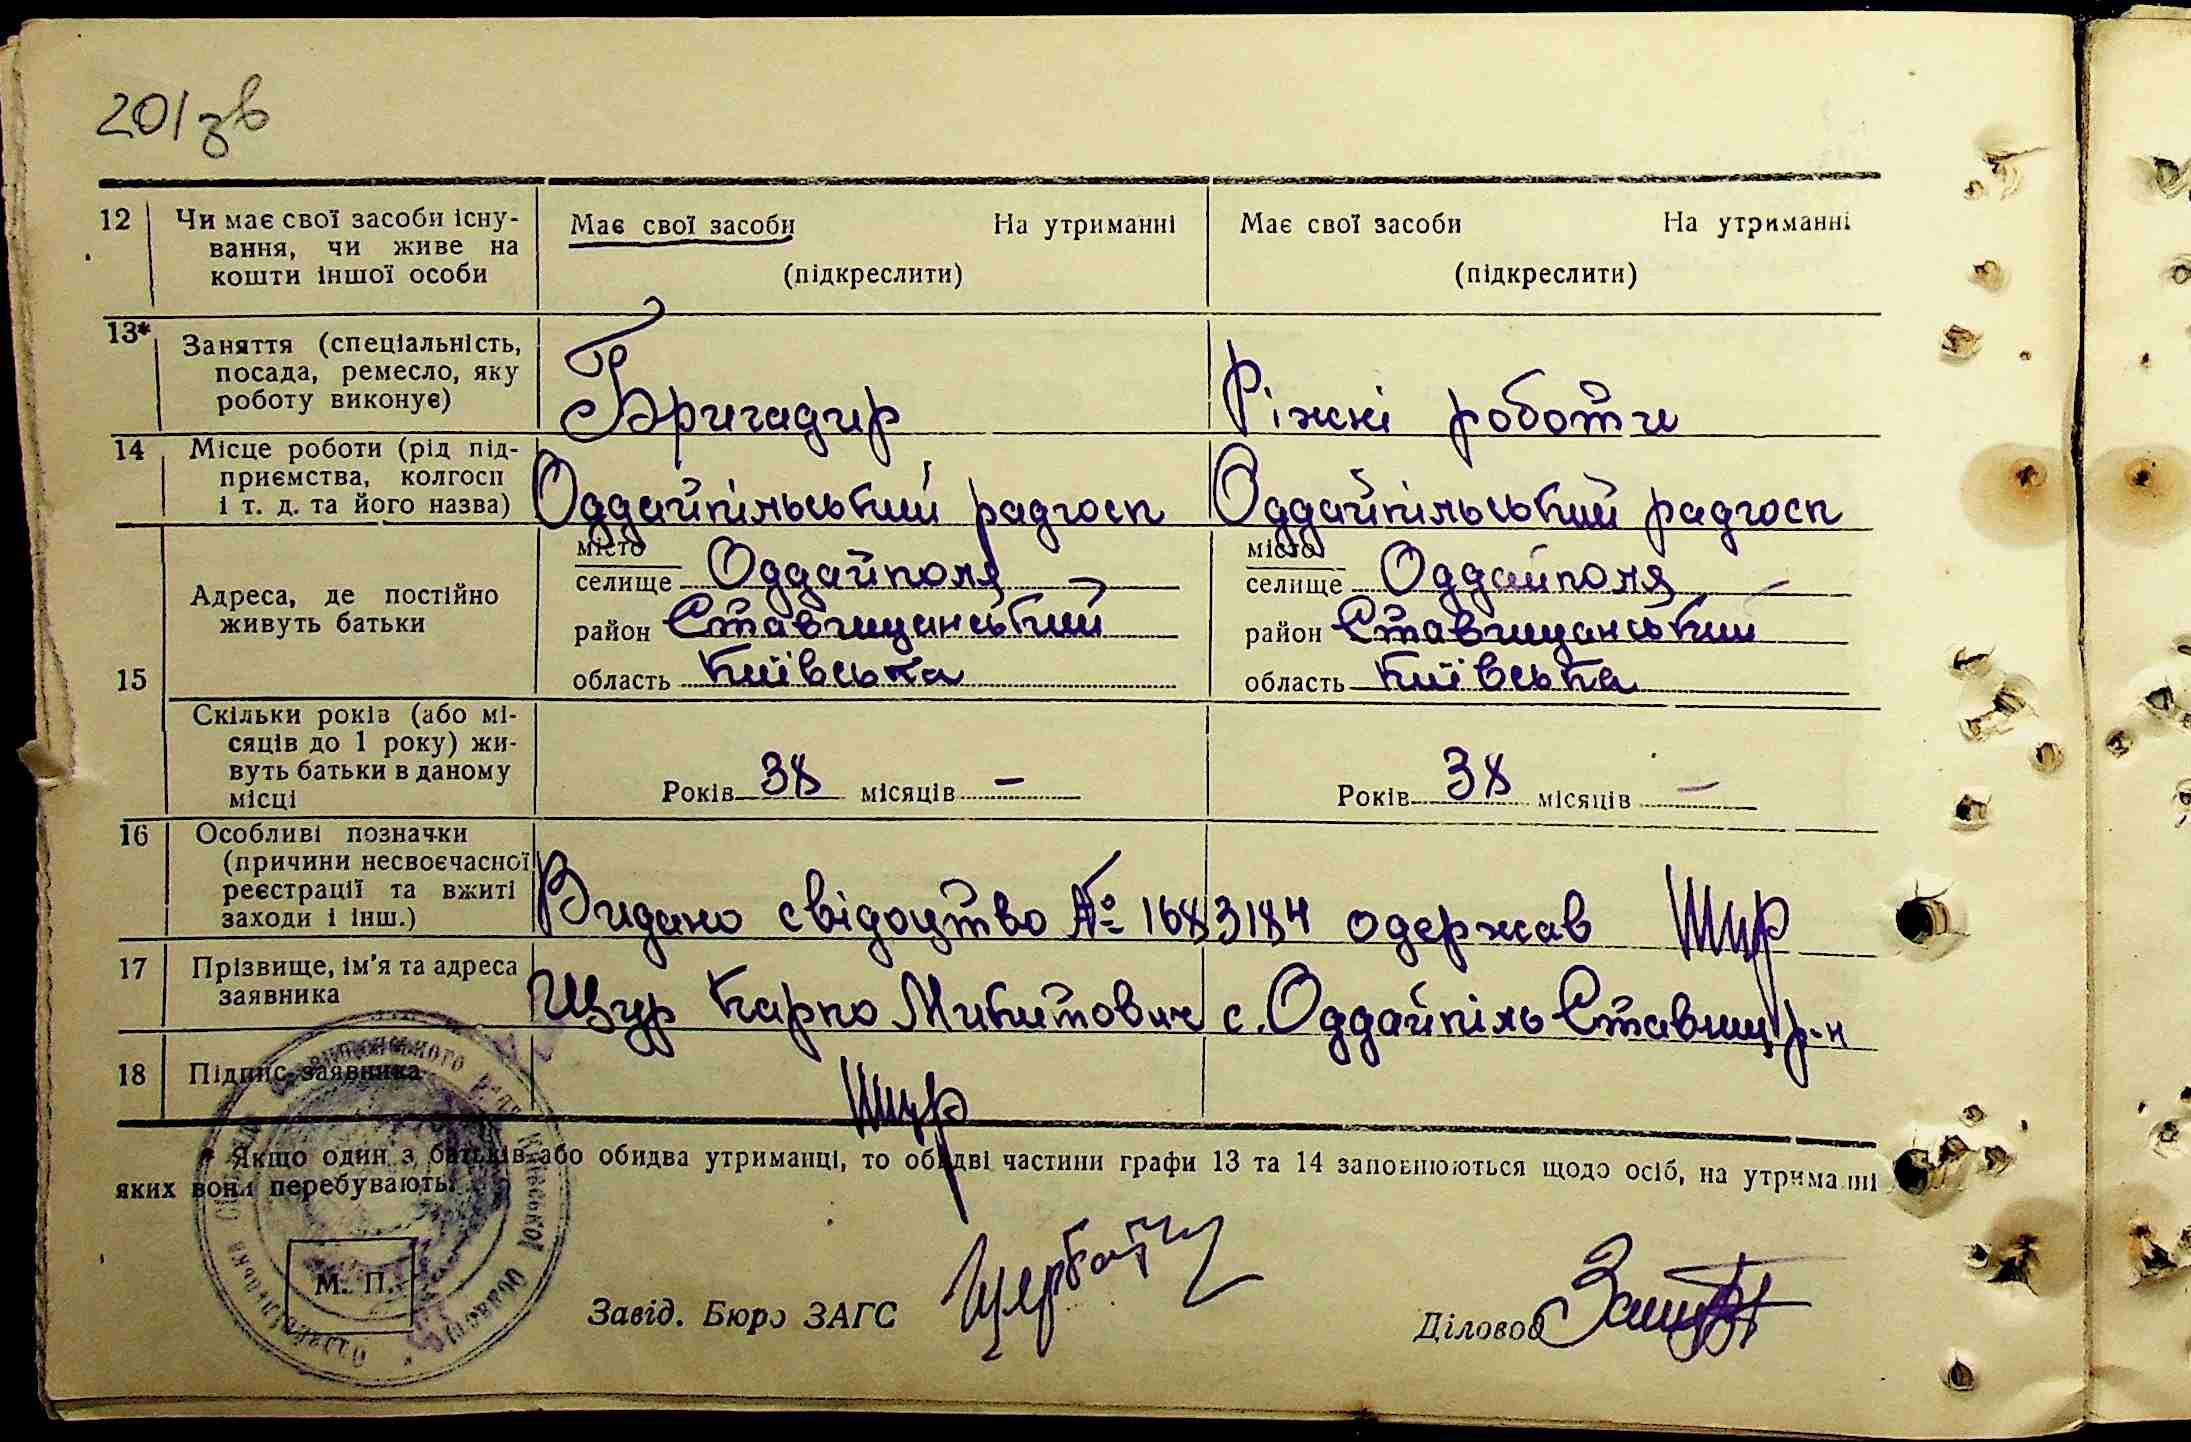 201зв
12 Чи має свої засоби існу- Має свої засоби На утриманні Має свої засоби На утриманні
вання, чи живе на
кошти іншої особи (підкреслити) (підкреслити)
13* Заняття (спеціальність,
посада, ремесло, яку
роботу виконує) Бригадир Ріжні роботи
14 Місце роботи (рід під-
приємства, колгосп
і т. д. та його назва) Оддайпільський радгосп Оддайпільський радгосп
місто місто
селище Оддайполя селище Оддайполя
Адреса, де постійно
живуть батьки район Ставищанський район Ставищанський
15 область Київська область Київська
Скільки років (або мі-
сяців до 1 року) жи-
вуть батьки в даному
місці Років 38 місяців — Років 38 місяців —
16 Особливі позначки
(причини несвоєчасної
реєстрації та вжиті
заходи і інш.) Видано свідоцтво № 1683184 одержав Щур
17 Прізвище, ім'я та адреса
заявника Щур Карпо Микитович с. Оддайпіль Ставищ р-н
18 Підпис заявника Щур
* Якщо один з батьків або обидва утриманці, то обидві частини графи 13 та 14 заповнюються щодо осіб, на утриманні
яких вони перебувають.
М. П.
Завід. Бюро ЗАГС Діловод